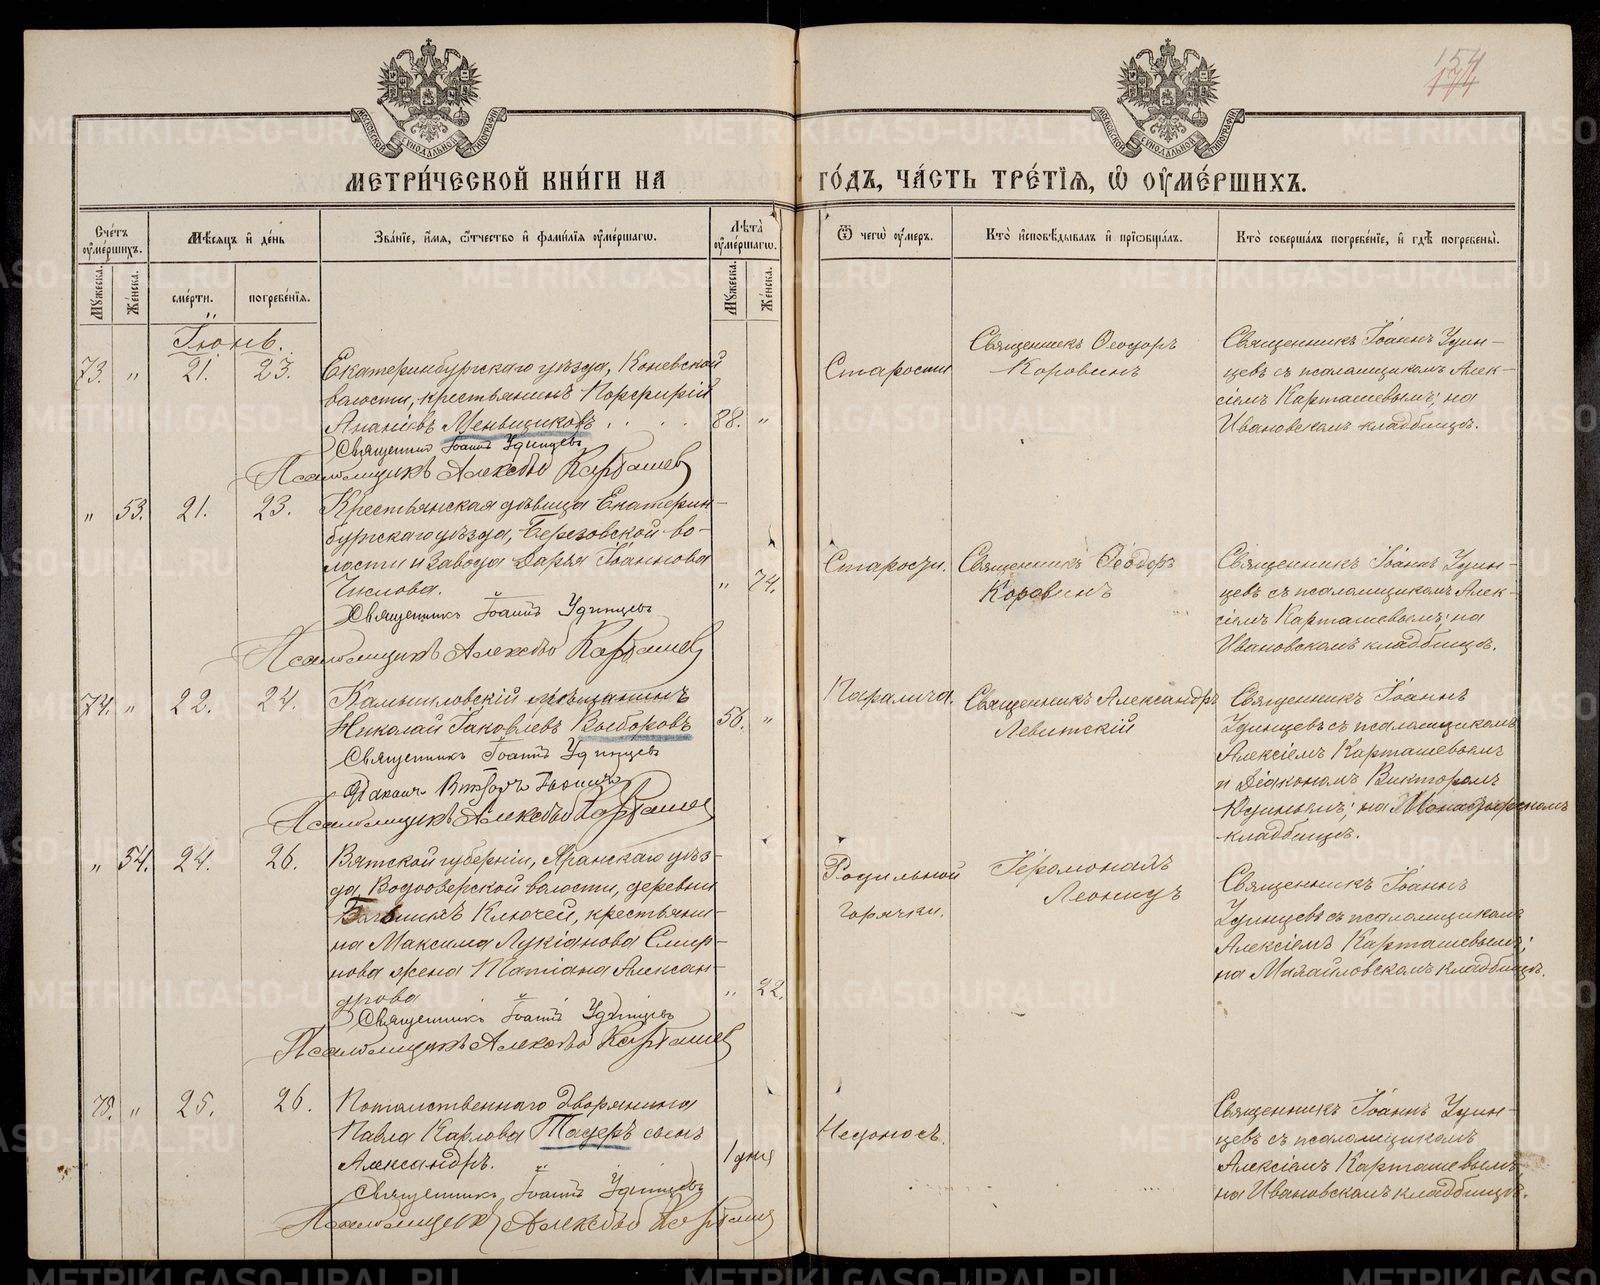 154
174
МЕТРИ́ЧЕСКОЙ КНИ́ГИ НА ГО́ДЪ, ЧА́СТЬ ТРЕ́ТІѦ, Ѡ҆ ОУ҆МЕ́РШИХЪ.
Сче́тъ оу҆ме́ршихъ.
Мѣ́сѧцъ и҆ де́нь
Зва́нїе, и҆́мѧ, ѻ҆́тчество и҆ фами́лїѧ оу҆ме́ршагѡ.
Лѣ́та оу҆ме́ршагѡ.
Ѿ чегѡ̀ оу҆́меръ.
Кто̀ и҆сповѣ́дывалъ и҆ прїѡбща́лъ.
Кто̀ соверша́лъ погребе́нїе, и҆ гдѣ̀ погребены̀.
Мꙋ́жеска.
Же́нска.
сме́рти.
погребе́нїѧ.
Мꙋ́жеска.
Же́нска.
Іюнь.
73. " 21. 23.
Екатеринбургскаго уѣзда, Коневской
волости, крестьянинъ Порфирій
Ананіевъ Меньщиковъ . . . . 88. "
Священникъ Іоаннъ Удинцевъ
Псаломщикъ Алексѣй Карташев
Старости
Священникъ Ѳеодоръ
Коровинъ
Священникъ Іоаннъ Удин-
цевъ съ псаломщикомъ Алек-
сіемъ Карташевымъ; на
Ивановскомъ кладбищѣ.
" 53. 21. 23.
Крестьянская дѣвица Екатерин-
бургскаго уѣзда, Березовской во-
лости и завода Дарья Іоаннова
Числова. " 74.
Священникъ Іоаннъ Удинцевъ
Псаломщикъ Алексѣй Карташев
Старости.
Священникъ Ѳеодоръ
Коровинъ
Священникъ Іоаннъ Удин-
цевъ съ псаломщикомъ Алек-
сіемъ Карташевымъ; на
Ивановскомъ кладбищѣ.
74. " 22. 24.
Камышловскій мѣщанинъ
Николай Іаковлевъ Выборовъ 56. "
Священникъ Іоаннъ Удинцевъ
Діаконъ Викторъ
Псаломщикъ Алексѣй Карташев
Паралича.
Священникъ Александръ
Левитскій
Священникъ Іоаннъ
Удинцевъ съ псаломщикомъ
Алексіемъ Карташевымъ
и Діакономъ Викторомъ
на Монастырскомъ
кладбищѣ.
" 54. 24. 26.
Вятской губерніи, Яранскаго уѣз-
да, Водоозерской волости, деревни
Ключей, крестьяни-
на Максима Лукіанова Смир-
нова жена Татіана Алексан-
дрова " 22.
Священникъ Іоаннъ Удинцевъ
Псаломщикъ Алексѣй Карташев
Родильной
горячки.
Іеромонахъ
Леонидъ
Священникъ Іоаннъ
Удинцевъ съ псаломщикомъ
Алексіемъ Карташевымъ;
на Михайловскомъ кладбищѣ.
75. " 25. 26.
Потомственнаго дворянина
Павла Карлова Тадеръ сынъ
Александръ. 1 дня
Священникъ Іоаннъ Удинцевъ
Псаломщикъ Алексѣй Карташев
Недоносъ.
Священникъ Іоаннъ Удин-
цевъ съ псаломщикомъ
Алексіемъ Карташевымъ,
на Ивановскомъ кладбищѣ.
METRIKI.GASO-URAL.RU